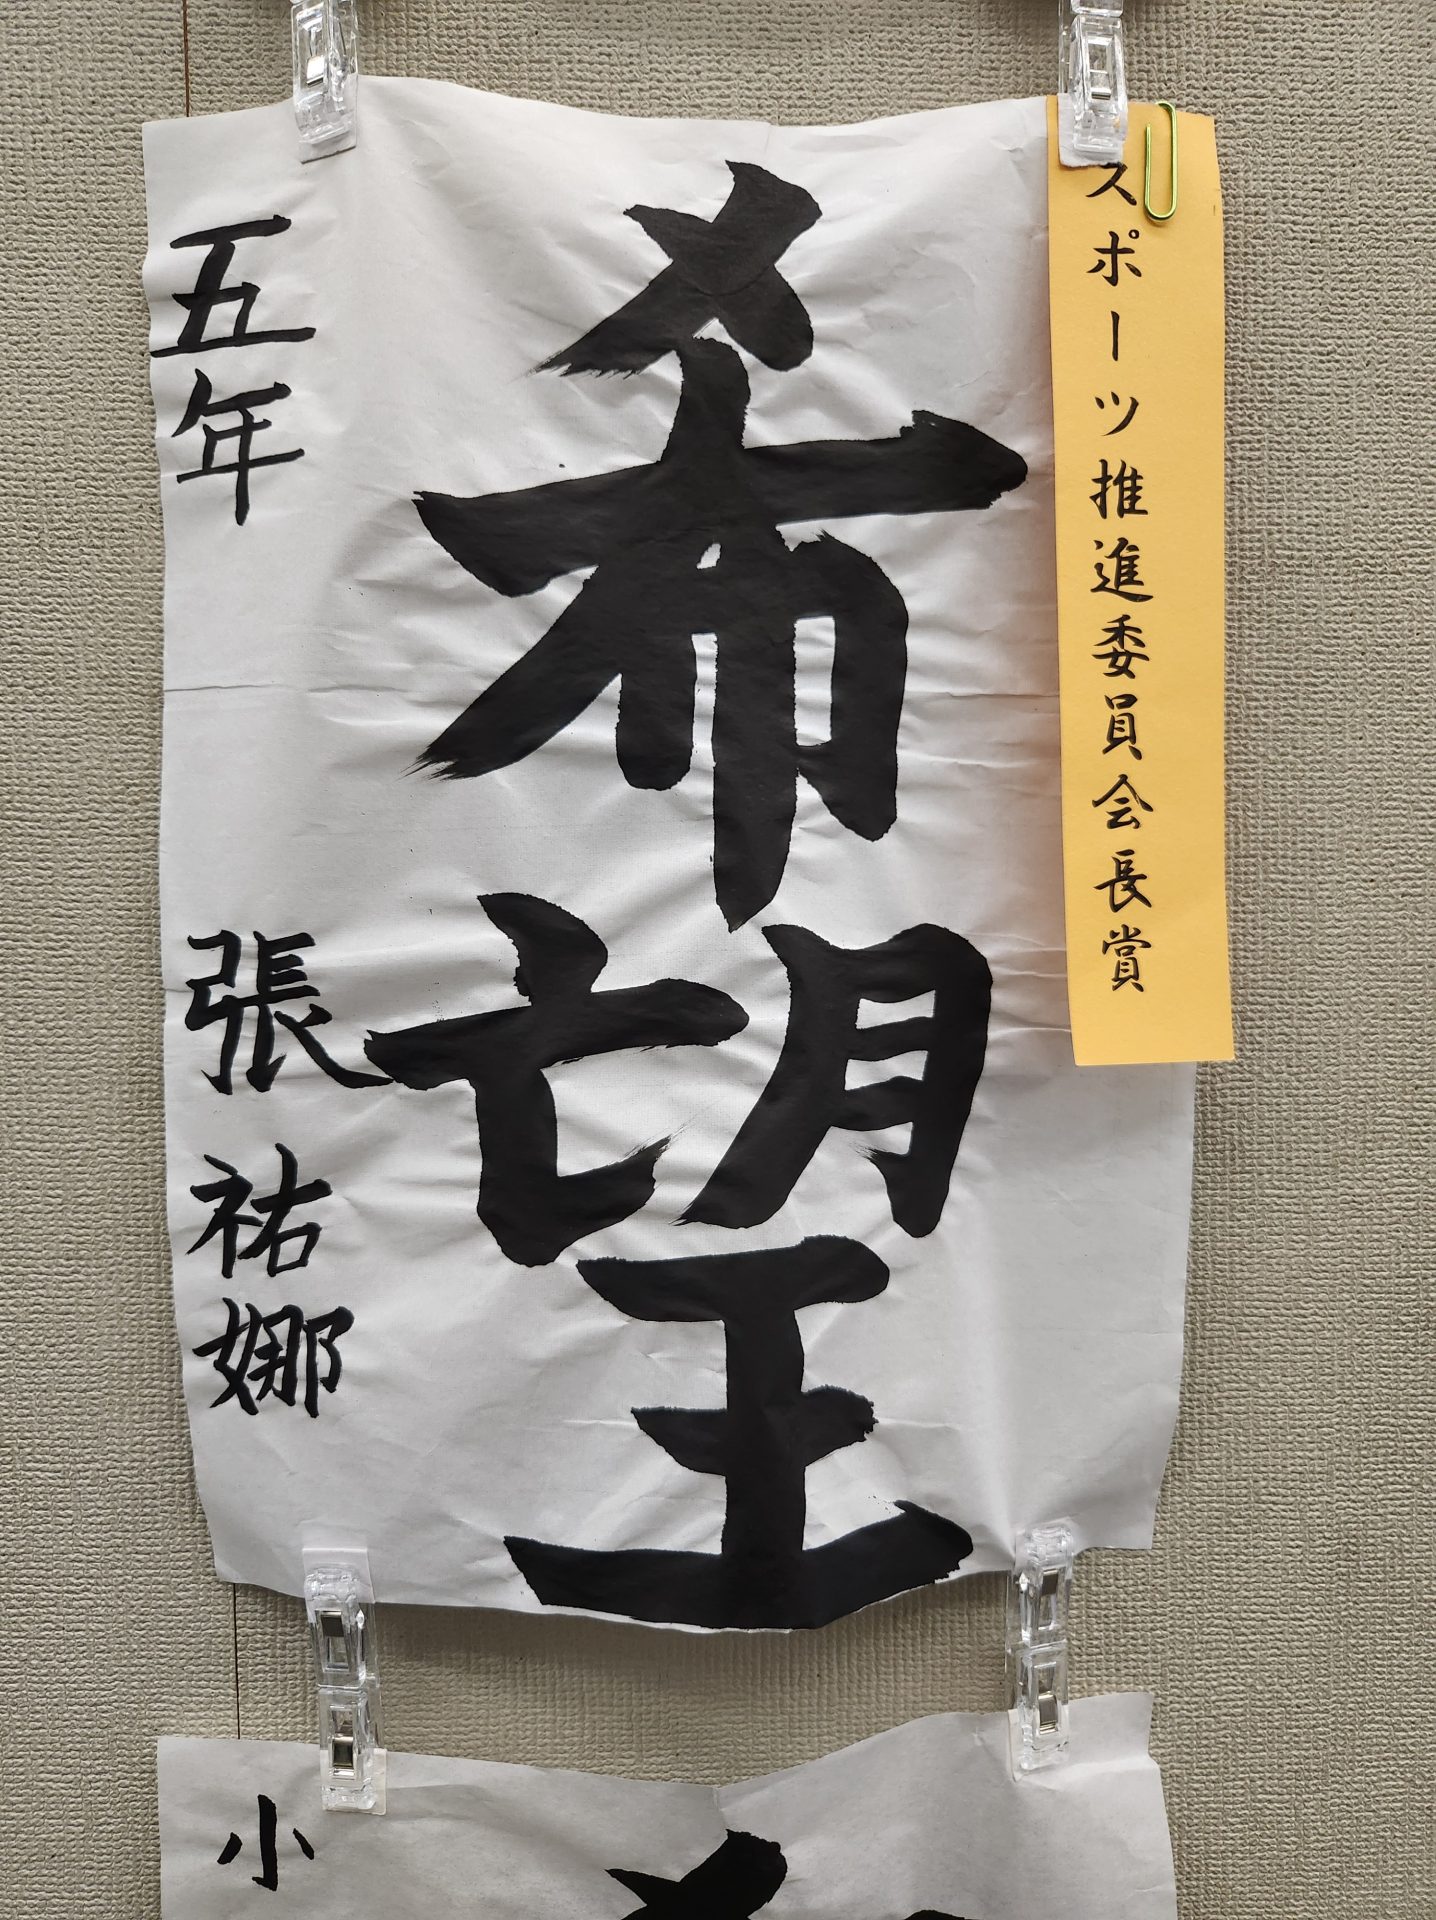 スポーツ推進委員会長賞
希望
五年 張祐娜
小